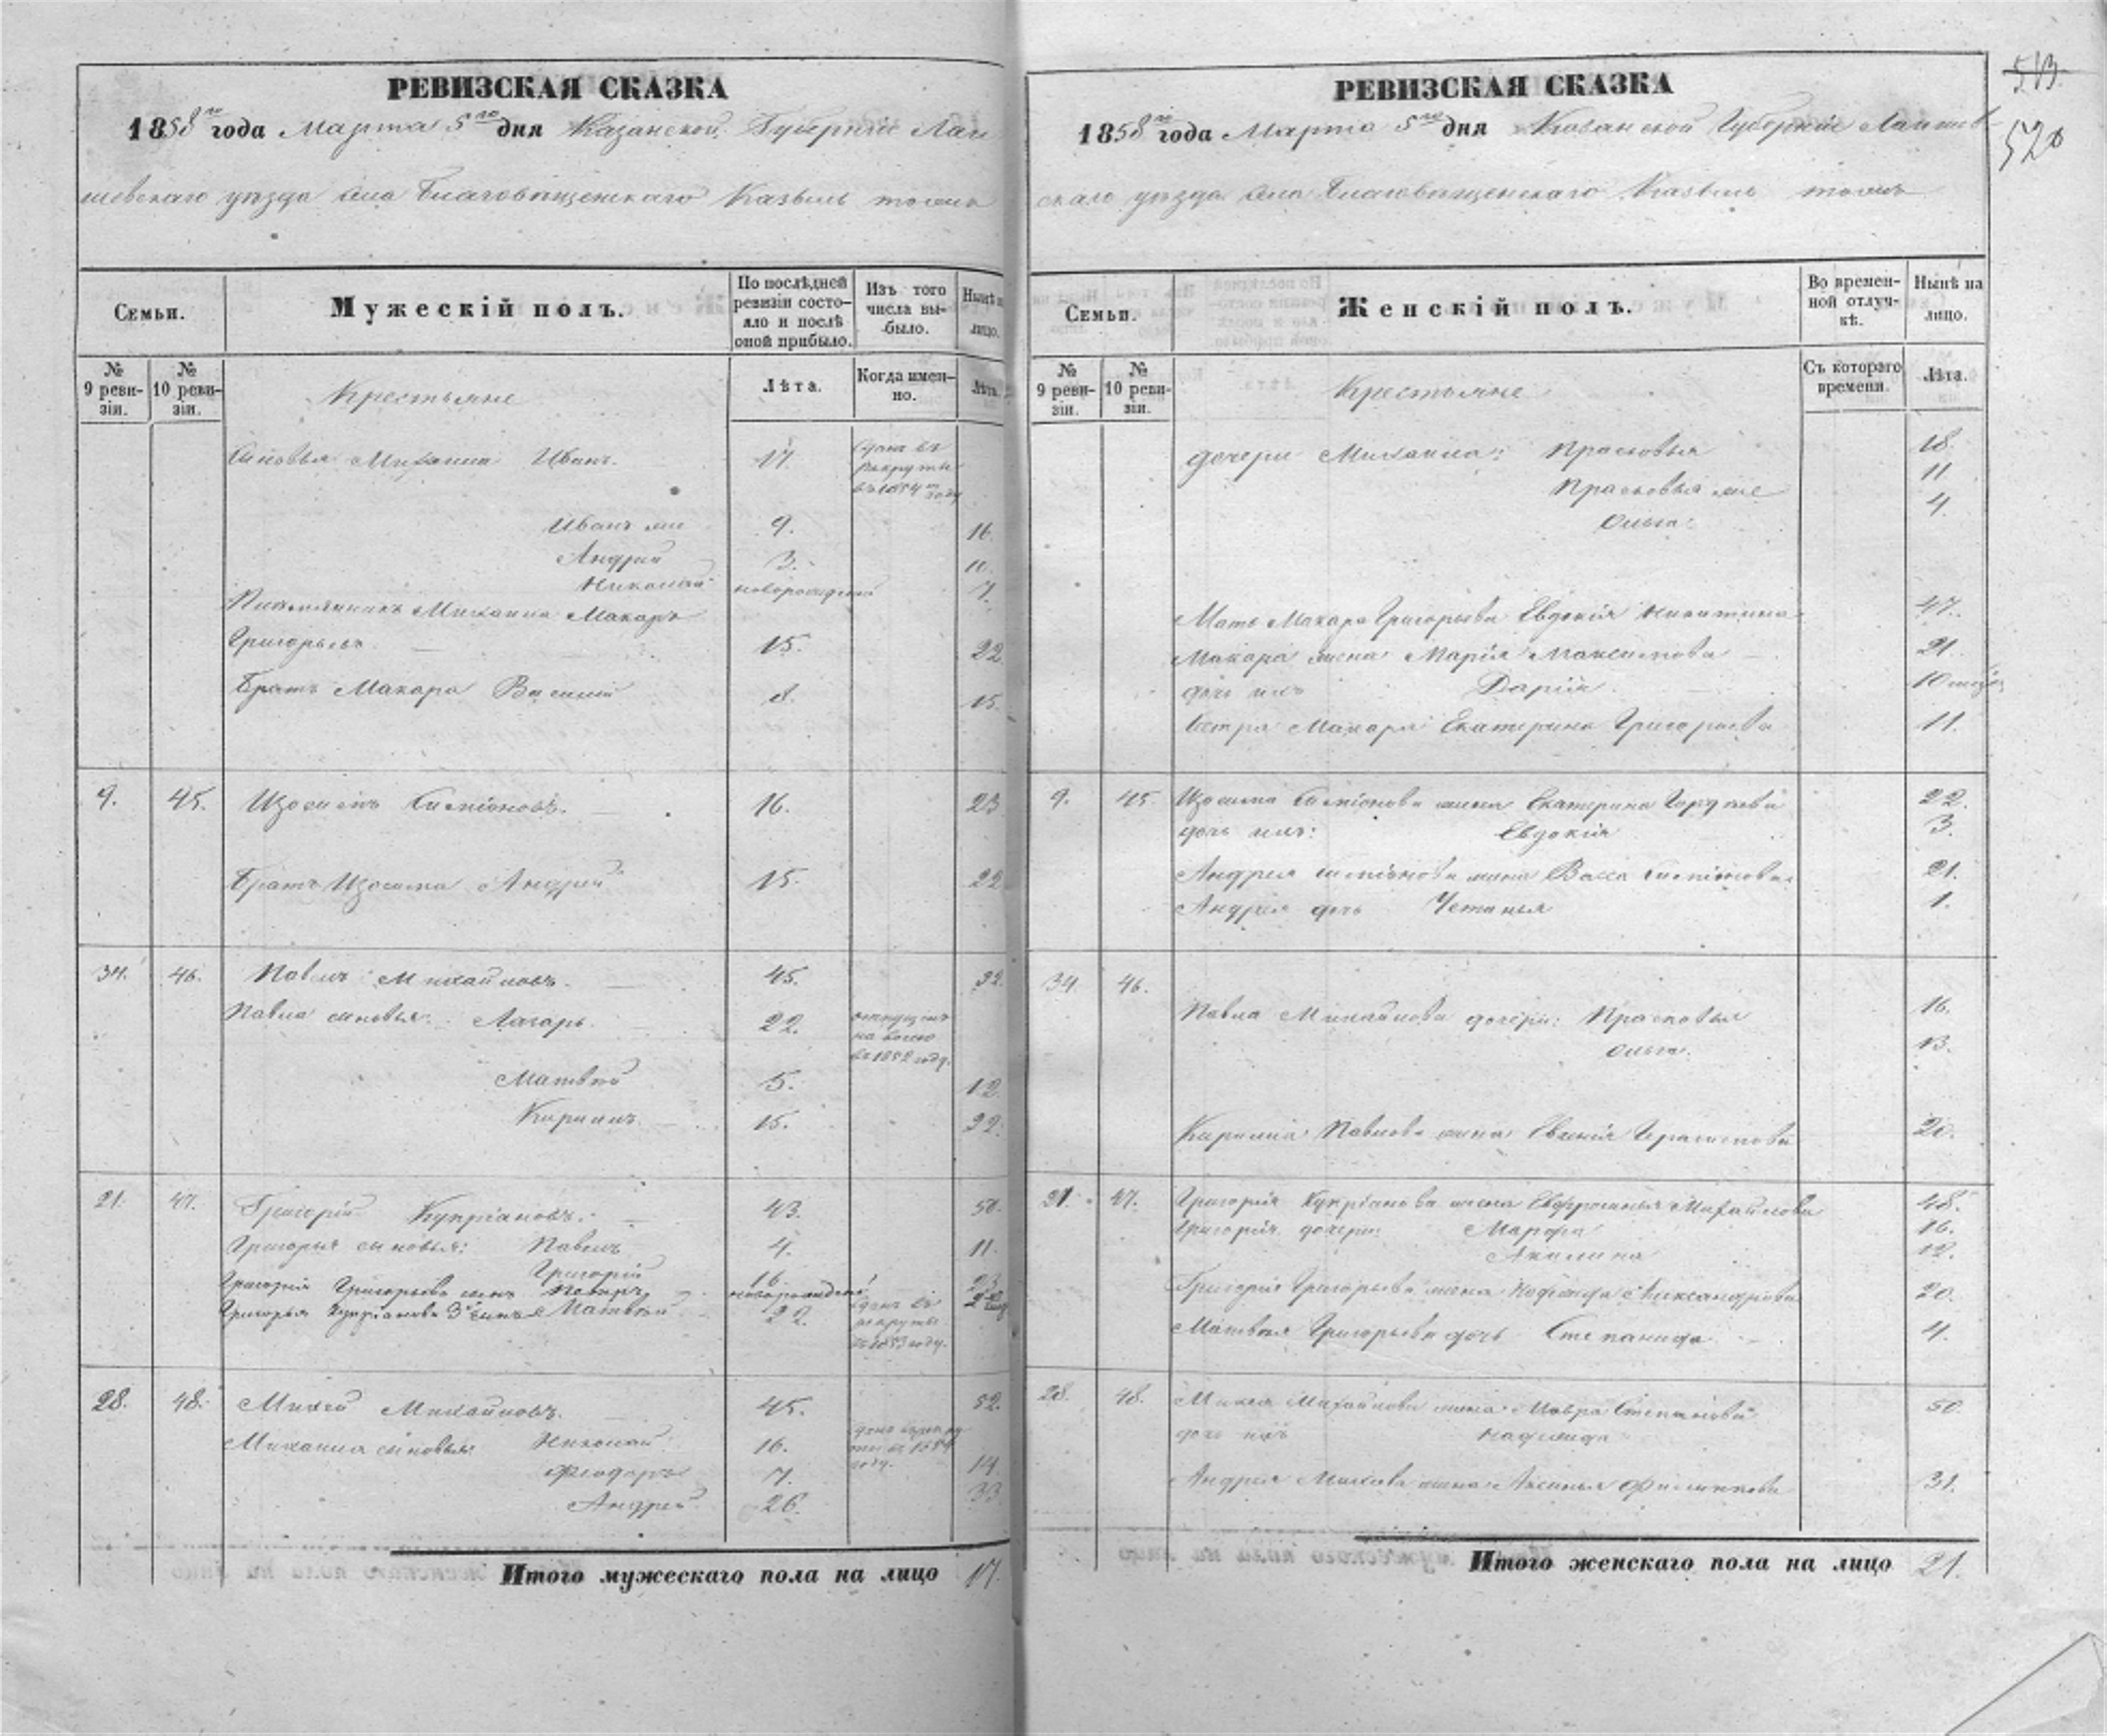 РЕВИЗСКАЯ СКАЗКА
1858го года Марта 5го дня Казанской Губернии Лаи
шевскаго уѣзда села Благовѣщенскаго Казыль тожъ
Семьи.
Мужескій полъ.
По послѣдней ревизіи состояло и послѣ оной прибыло.
Изъ того числа выбыло.
Нынѣ на лицо.
№ 9 ревизіи.
№ 10 ревизіи.
Крестьяне
Лѣта.
Когда именно.
Лѣта.
Сыновья Михаила Иванъ. 17. сданъ въ рекруты въ 1854м году
Иванъ ме 9. 16.
Андрей 3.
Николай новорожденный 7.
Племянникъ Михаила Макаръ
Григорьевъ 15. 22.
Братъ Макара Василий 8. 15.
9. 45. Изосимъ Симіоновъ. 16. 23
Братъ Изосима Андрей 15. 22
34. 46. Павелъ Михайловъ. 45.
Павла сыновья: Лазарь 22. отпущенъ на волю въ 1852 году.
Матвей 5. 12
Кирилъ 15. 22.
21. 47. Григорій Купріановъ. 43. 50.
Григорья сыновья: Павелъ 4. 11.
Григорій 16. 23
Григорія Григорьева сынъ новорожденный
Григорья Купріанова 3й сынъ Матвей 22. сданъ въ рекруты въ 1853 году.
28. 48. Михей Михайловъ. 45. 52.
сыновья: Николай 16. году.
Феодоръ 7. 14
Андрей 26. 33
Итого мужескаго пола на лицо 17.
513.
520
РЕВИЗСКАЯ СКАЗКА
1858го года Марта 5го дня Казанской Губерніи Лаишев
скаго уѣзда села Благовѣщенскаго Казыль тожъ
Семьи.
Женскій полъ.
Во временной отлучкѣ.
Нынѣ на лицо.
№ 9 ревизіи.
№ 10 ревизіи.
Крестьяне
Съ котораго времени.
Лѣта.
дочери Михаила: Прасковья 18.
Прасковья ме 11
Ольга. 4.
Мать Макара Григорьева Евдокія Никитина 47.
Макара жена Марія Максимова 21.
дочь ихъ Дарія. 10
Сестра Макара Екатерина Григорьева 11.
9. 45. Изосима Симіонова жена Екатерина Гордеева 22.
дочь ихъ: Евдокія 3.
Андрея Симіонова жена Васса Симіонова 21.
Андрея дочь Устинья 1.
34. 46. Павла Михайлова дочери: Прасковья 16.
Ольга. 13.
Кирилла Павлова жена Евгенія Герасимова 20.
21. 47. Григорія Купріанова жена Евфросинья Михайлова 48.
Григорія дочери: Марфа 16.
Акилина 12.
Григорія Григорьева жена Александрова 20.
Матвея Григорьева дочь Степанида 4.
28. 48. Михея Михайлова жена Мавра Степанова 50.
дочь ихъ Надежда
Андрея Михеева жена Аксинья Филиппова 31.
Итого женскаго пола на лицо 21.